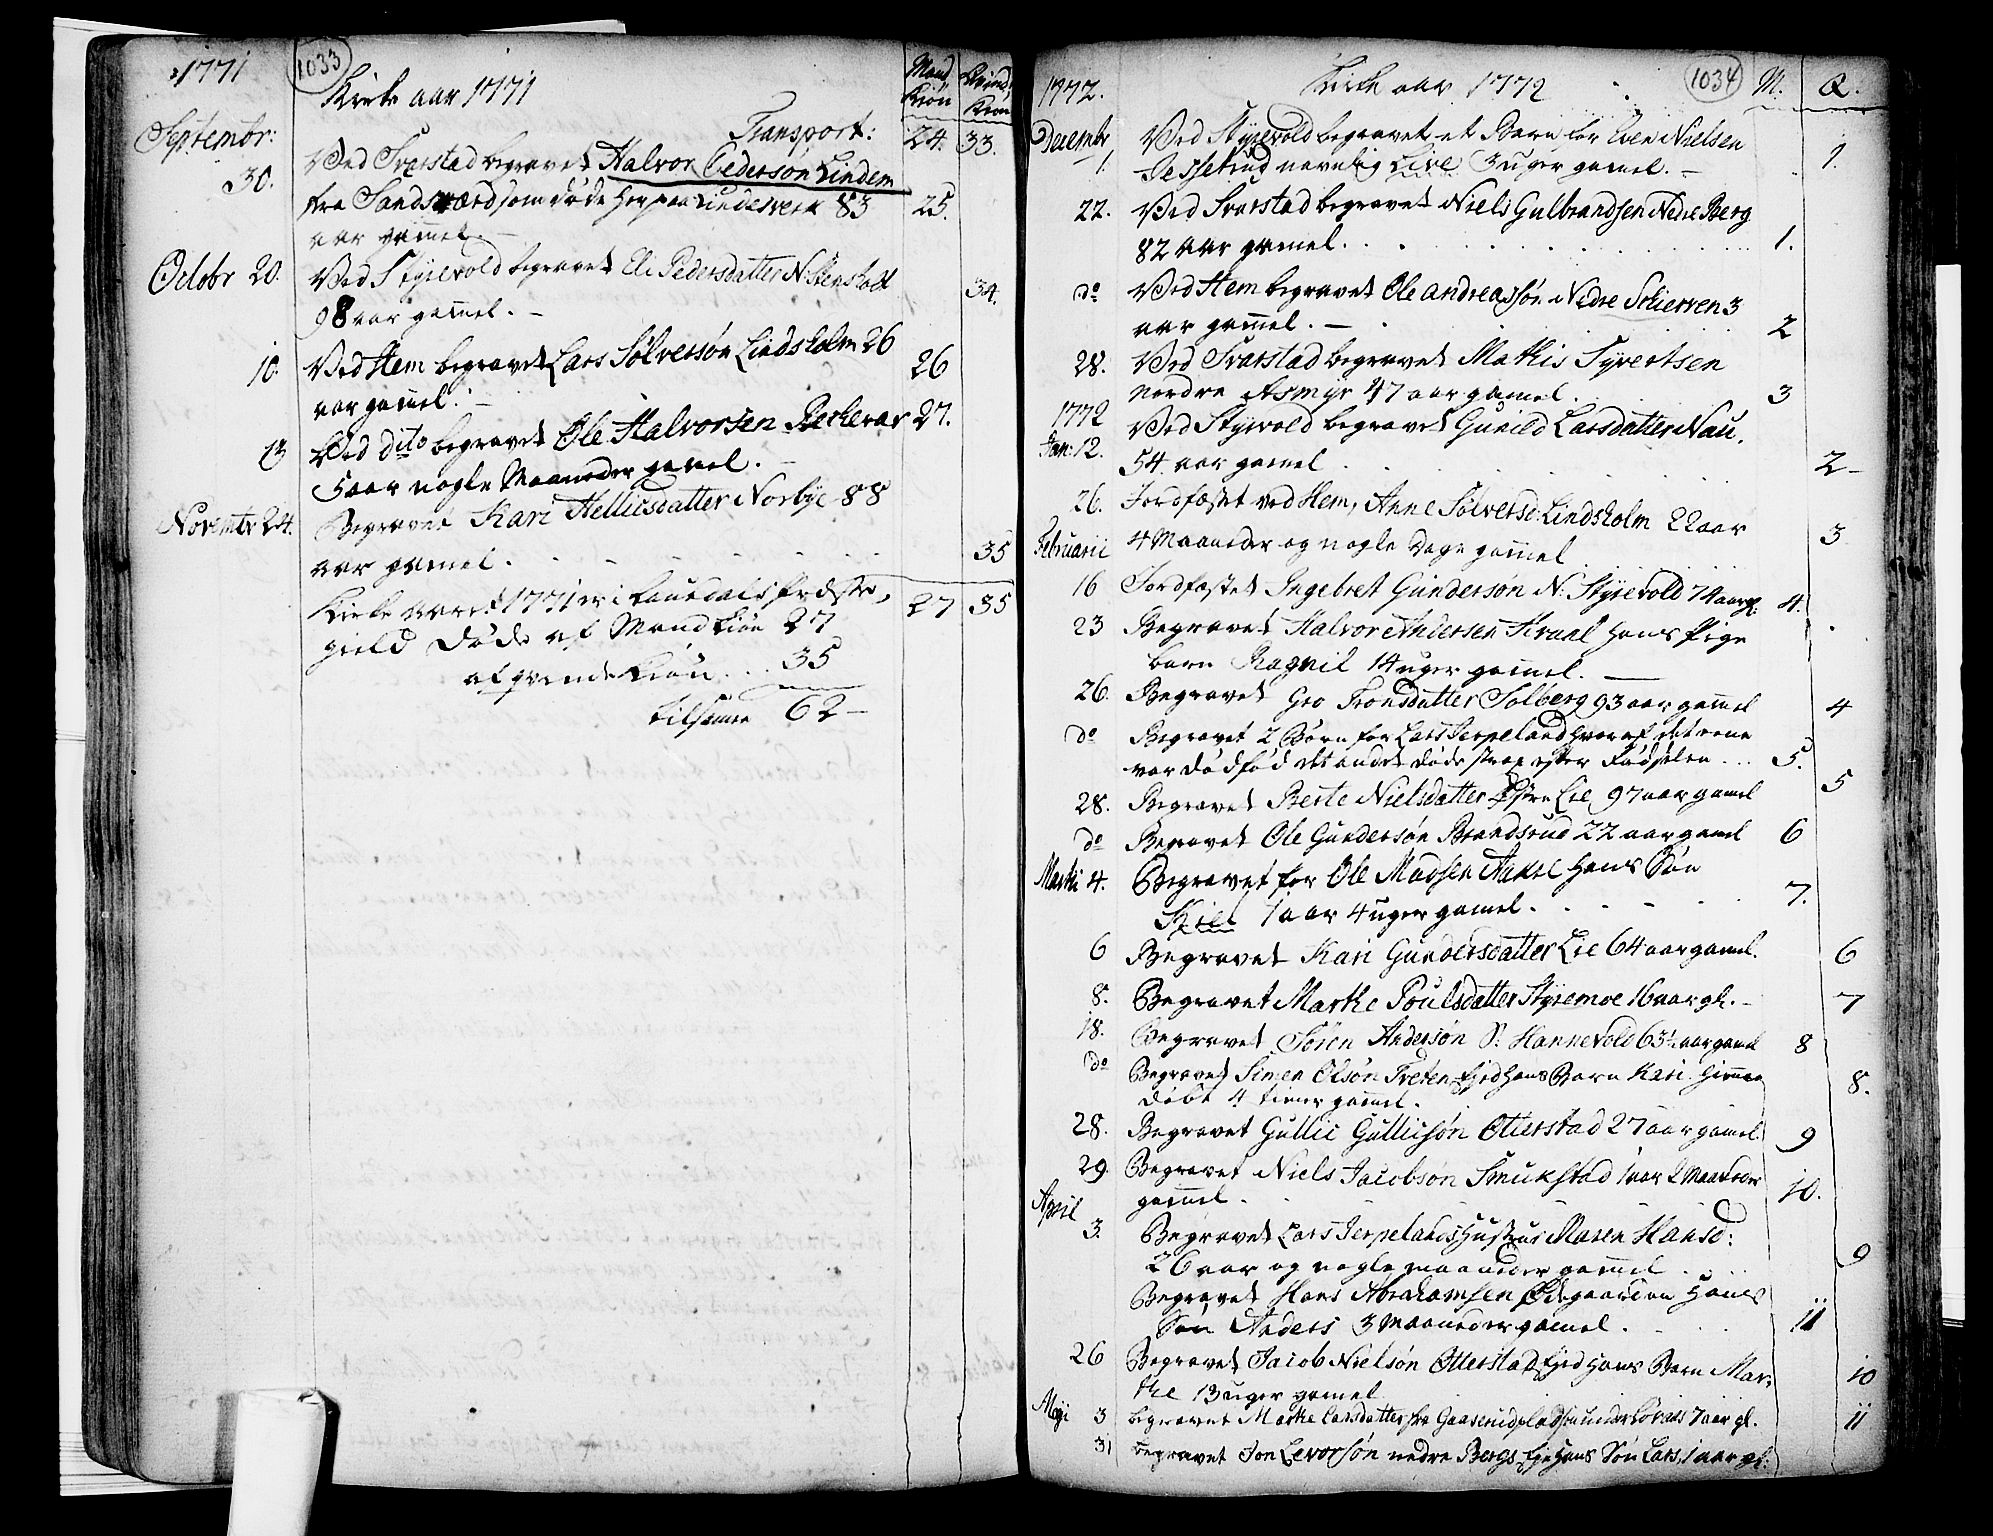 1771
1033
Kirke aar 1771
Mand Kiøn
Kvind Kiøn
Transport: 24. 33.
Septembr:
30. Ved Svarstad begravet Halvor Pedersøn Lindem
fra Sandsværd som døde her paa Lindeverk 83 25.
aar gamel. –
Octobr 20. Ved Styrevold begravet Eli Pedersdatter N: Stensholt
98 aar gamel. – 34.
10. Ved Hem begravet Lars Sølversøn Lindsholm 26 26
aar gamel. –
13 Ved dito begravet Ole Halvorsen Beckevar 27.
5 aar nogle Maaneder gamel. –
Novembr 24. Begravet Kari Hellicsdatter Norbye 88
aar gamel. 35
Kirke aaret 1771 er i Laurdals Præste, 27 35
gield døde af Mandkiøn 27
af qvindekiøn . . 35
tilsamen 62 –
1034
1772. Kirke aar 1772 M. Q.
Decembr
1. Ved Styrevold begravet et Barn for Even Nielsen
navnlig Live 3 uger gamel. – 1.
22. Ved Svarstad begravet Niels Gulbrandsen Nedre Berg
82 aar gamel. 1.
do Ved Hem begravet Ole Andreassøn Nedre Skierven 3
aar gamel. – 2
28. Ved Svarstad begravet Mathis Syvertsen
nordre Asmyr 47 aar gamel. 3
1772
Jan: 12. Ved Styrvold begravet Gunild Larsdatter Nau.
54 aar gamel 2 –
26. Jordfæstet ved Hem, Anne Sølversd: Lindsholm 22 aar
Februarii 4 Maaneder og nogle Dage gamel 3
16 Jordfæstet Ingebret Gundersøn N: Styrevold 74 aar gl: 4.
23 Begravet Halvor Andersen hans Pige
barn Ragnil 14 uger gamel.
26. Begravet Gro Tronsdatter Solberg 93 aar gamel 4
do Begravet 2 Børn for Lars Jerpeland hvoraf det eene
var dødfød det andet døde strax efter Fødselen . . . 5.
28. Begravet Berte Nielsdatter Østre Lie 97 aar gamel 5
do Begravet Ole Gundersøn Brandsrud 22 aar gamel 6
Martii 4. Begravet for Ole Madsen Aakre hans Søn
Kiel 1 aar 4 uger gamel. 7.
6 Begravet Kari Gundersdatter Lie 64 aar gamel. 6
8. Begravet Marthe Poulsdatter Styremoe 16 aar gl. – 7
18. Begravet Søren Andersøn S: Hannevold 63½ aar gamel 8
do Begravet Simen Olsøn Treten Ejed hans Barn Kari hieme
døbt 4 timer gamel. 8.
28. Begravet Gullic Gullicsøn Otterstad 27 aar gamel. 9
29. Begravet Niels Jacobsøn Smukstad 1 aar 2 Maaneder
gamel. 10.
April
3. Begravet Lars Jerpelands Hustrue Maren Hansd:
26 aar og nogle maaneder gamel 9
Begravet Hans Abrahamsen Ødegaarden hans
Søn Anders 3 Maaneder gamel. 11
26 Begravet Jacob Nielsøn Otterstad Ejed hans Barn Mar,
the 13 uger gamel 10
Maji 3 begravet Marthe Larsdatter fra Gaaserud pladsen under 7 aar gl. 11
31 begravet Jon Levorsøn nedre Bergs Eje hans Søn Lars, 1 aar gl: